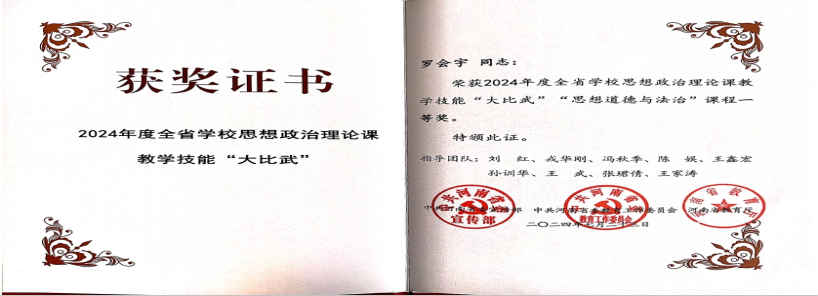 获奖证书
2024年度全省学校思想政治理论课
教学技能“大比武”
罗会宇 同志：
荣获2024年度全省学校思想政治理论课教
学技能“大比武”“思想道德与法治”课程一
等奖。
特颁此证。
指导团队：刘 红、戎华刚、冯秋季、陈 娱、王鑫宏
孙训华、王 武、张珺倩、王家涛
中共河南省委宣传部 中共河南省委教育工作委员会 河南省教育厅
二〇二四年七月二十二日
中共河南省委
宣传部
中共河南省委
教育工作委员会
河南省教育厅